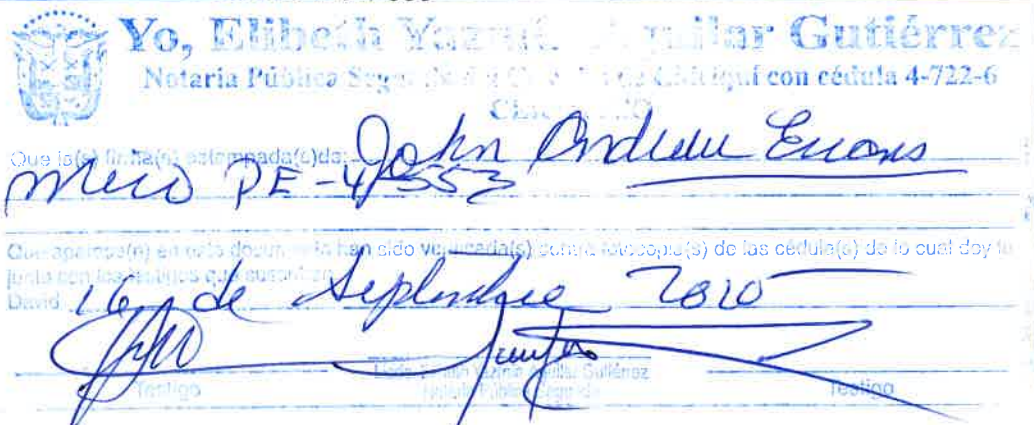 Yo, Elibeth Aguilar Gutiérrez
Notaria Pública del de Chiriquí con cédula 4-722-6
Que la(s) firma(s) estampada(s) de: John Andrew Evans
PE-4-553
Que aparece(n) en este documento han sido verificada(s) contra fotocopia(s) de las cédula(s) de lo cual doy fe
junto con los testigos que suscriben
David 16 de Septiembre
Testigo
Notaria Pública Segunda
Testigo